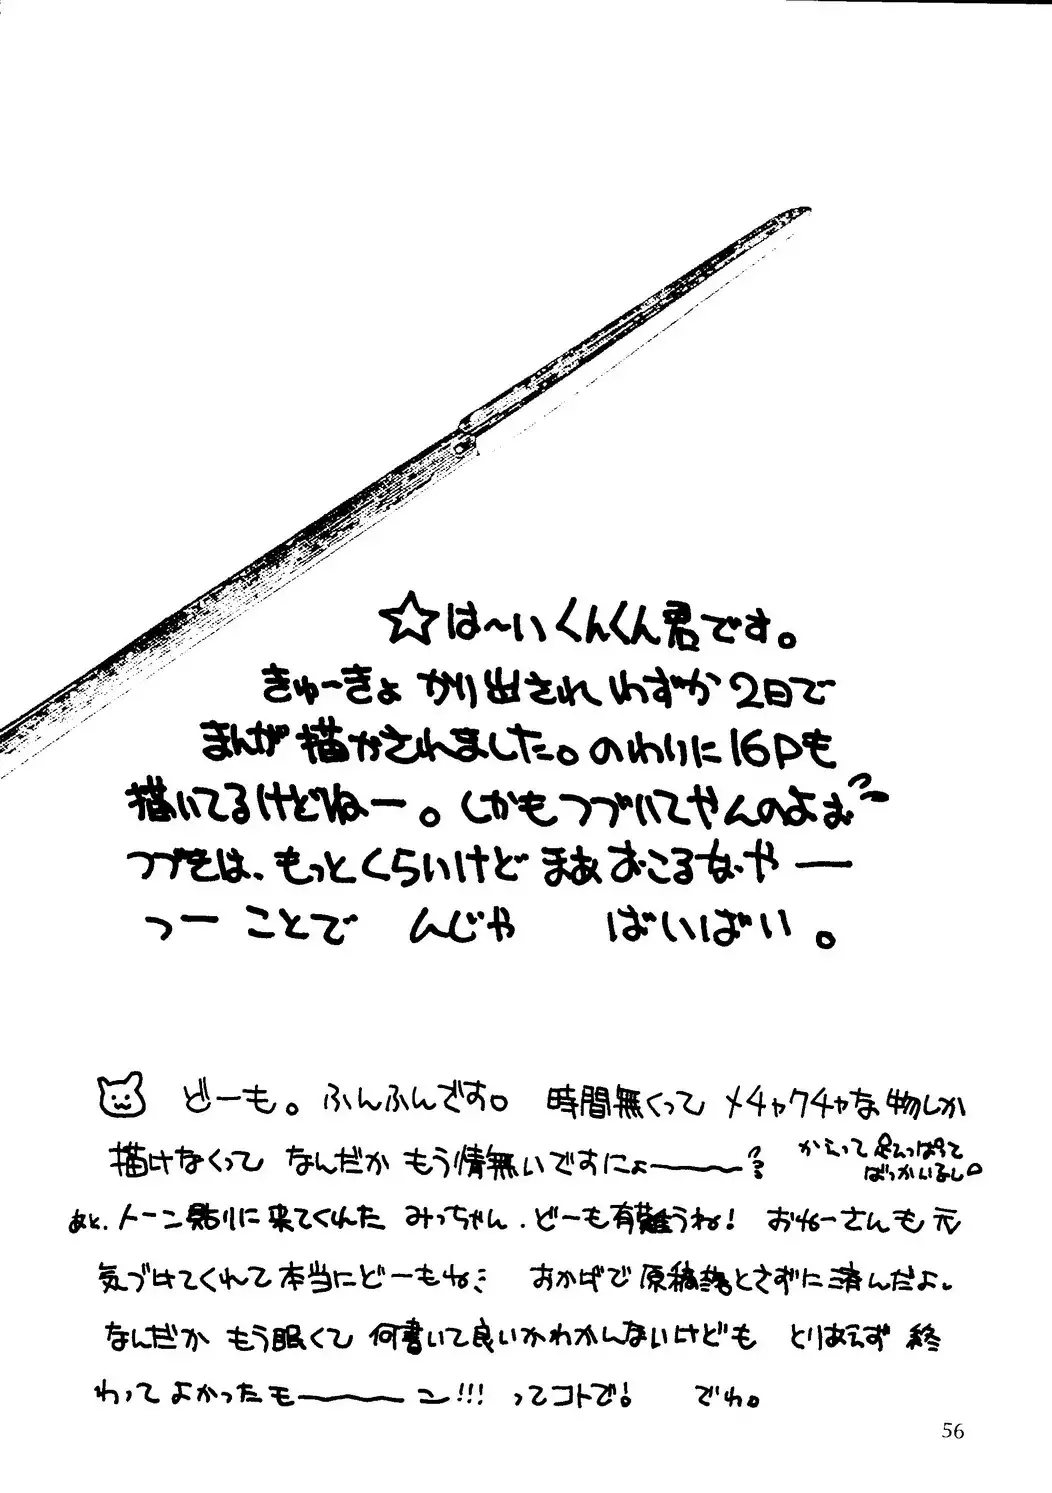 ☆は〜い くんくん君です。
きゅーきょ かり出され わずか2日で
まんが描かされました。のわりに16Pも
描いてるけどねー。しかもつづいてやんのよぉ
つづきは、もっとくらいけど まあおこるなやー
っー ことで んじゃ ばいばい。
どーも。ふんふんです。時間無くって メチャクチャな物しか
描けなくって なんだか もう情無いですにょ〜
かえって足ひっぱって
ばっかいるし。
あと、トーン貼りに来てくれた みっちゃん、どーも有難うね! おねーさんも元
気づけてくれて本当にどーもね。 おかげで原稿落とさずに済んだよ。
なんだか もう眠くて 何書いて良いかわかんないけども とりあえず 終
わって よかったモーーーン!!! ってコトで! でわ。
56